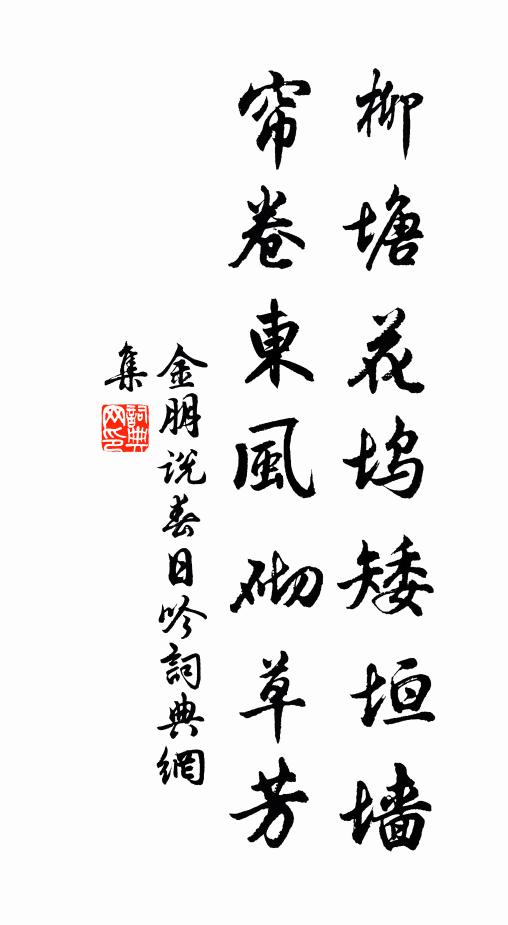 柳塘花坞矮垣墙
帘卷東風砌草芳
金朋说春日吟詞典網
集
詞典網印